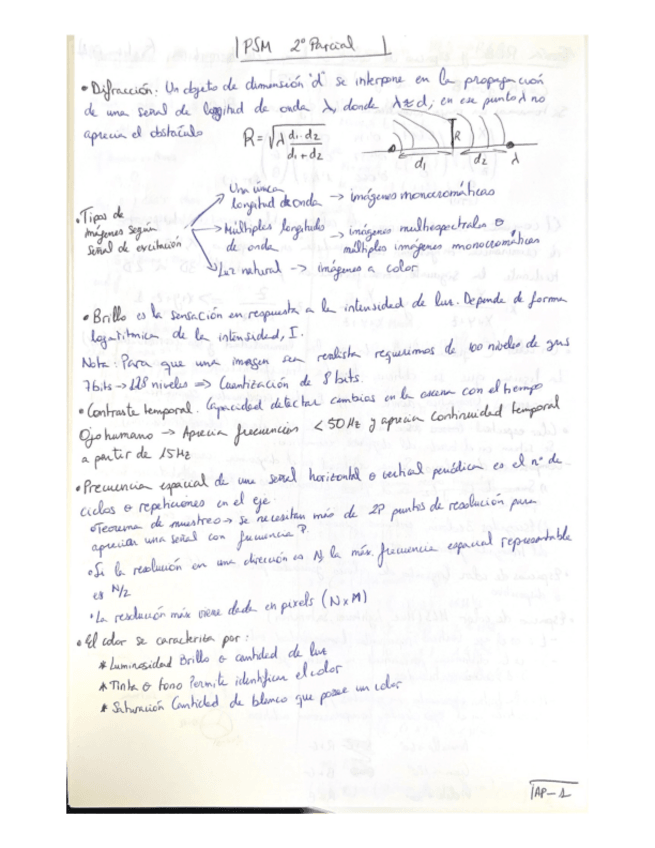 PSM 2º Parcial
• Difracción: Un objeto de dimensión "d" se interpone en la propagación
de una señal de longitud de onda λ, donde λ≈d; en ese punto λ no
aprecia el obstáculo
R = √(λ d1·d2 / (d1+d2))
R
d1 d2 λ
• Tipos de
imágenes según
señal de excitación
Una única
longitud de onda → imágenes monocromáticas
→ Múltiples longitudes
de onda → imágenes multiespectrales o
múltiples imágenes monocromáticas
Luz natural → imágenes a color
• Brillo es la sensación en respuesta a la intensidad de luz. Depende de forma
logarítmica de la intensidad, I.
Nota: Para que una imagen sea realista requerimos de 100 niveles de gris
7bits → 128 niveles => Cuantización de 8 bits.
• Contraste temporal. Capacidad detectar cambios en la escena con el tiempo
Ojo humano → Aprecia frecuencias < 50Hz y aprecia continuidad temporal
a partir de 15Hz
• Frecuencia espacial de una señal horizontal o vertical periódica es el nº de
ciclos o repeticiones en el eje.
• Teorema de muestreo → se necesitan más de 2P puntos de resolución para
apreciar una señal con frecuencia P.
• Si la resolución en una dirección es N, la máx. frecuencia espacial representable
es N/2
• La resolución máx viene dada en pixels (N×M)
• El color se caracteriza por:
* Luminosidad Brillo o cantidad de luz
* Tinta o tono Permite identificar el color
* Saturación Cantidad de blanco que posee un color
AP-1